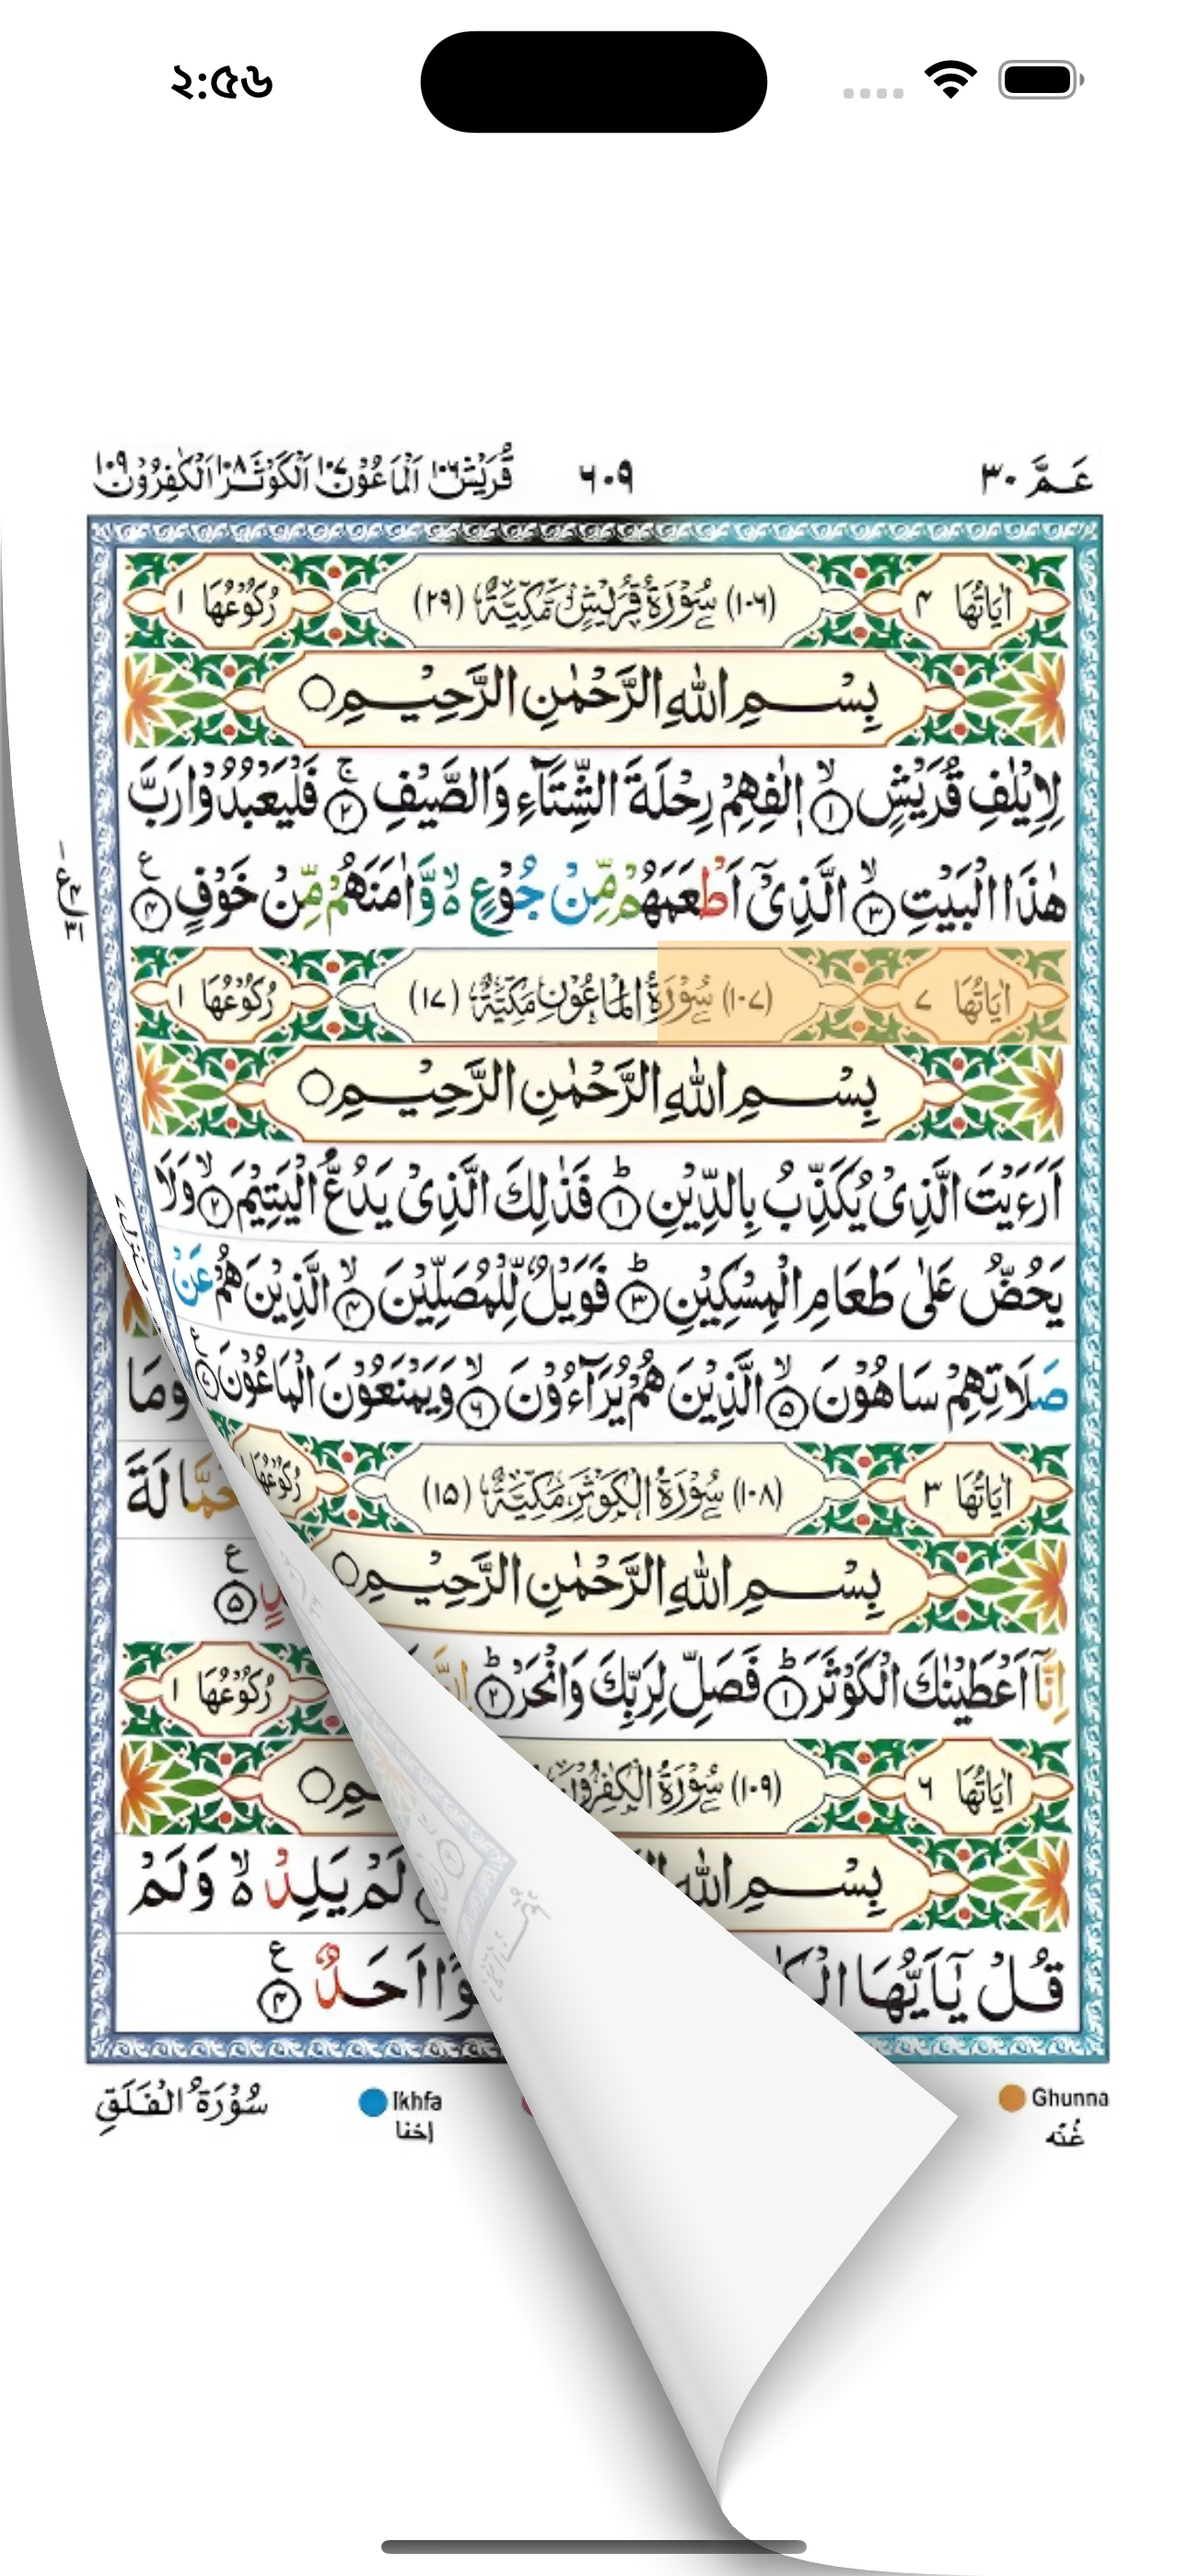 ২:৫৬
عَمَّ ٣٠
٦٠٩
قُرَيْش١٠٦ اَلْمَاعُوْن١٠٧ اَلْكَوْثَر١٠٨ اَلْكٰفِرُوْن١٠٩
اٰيَاتُهَا ٤ (١٠٦) سُوْرَةُ قُرَيْشٍ مَّكِّيَّةٌ (٢٩) رُكُوْعُهَا ١
بِسْمِ اللهِ الرَّحْمٰنِ الرَّحِيْمِ
لِاِيْلٰفِ قُرَيْشٍ ۙ﴿١﴾ اٖلٰفِهِمْ رِحْلَةَ الشِّتَآءِ وَالصَّيْفِ ۚ﴿٢﴾ فَلْيَعْبُدُوْا رَبَّ
هٰذَا الْبَيْتِ ۙ﴿٣﴾ الَّذِىْٓ اَطْعَمَهُمْ مِّنْ جُوْعٍ ۙ۬ وَّاٰمَنَهُمْ مِّنْ خَوْفٍ ﴿٤﴾ ع
اٰيَاتُهَا ٧ (١٠٧) سُوْرَةُ الْمَاعُوْنِ مَكِّيَّةٌ (١٧) رُكُوْعُهَا ١
بِسْمِ اللهِ الرَّحْمٰنِ الرَّحِيْمِ
اَرَءَيْتَ الَّذِىْ يُكَذِّبُ بِالدِّيْنِ ؕ﴿١﴾ فَذٰلِكَ الَّذِىْ يَدُعُّ الْيَتِيْمَ ۙ﴿٢﴾ وَلَا
يَحُضُّ عَلٰى طَعَامِ الْمِسْكِيْنِ ؕ﴿٣﴾ فَوَيْلٌ لِّلْمُصَلِّيْنَ ۙ﴿٤﴾ الَّذِيْنَ هُمْ عَنْ
صَلَاتِهِمْ سَاهُوْنَ ۙ﴿٥﴾ الَّذِيْنَ هُمْ يُرَآءُوْنَ ۙ﴿٦﴾ وَيَمْنَعُوْنَ الْمَاعُوْنَ ﴿٧﴾
وَمَا
اٰيَاتُهَا ٣ (١٠٨) سُوْرَةُ الْكَوْثَرِ مَكِّيَّةٌ (١٥) رُكُوْعُهَا
حَمَّالَةَ
بِسْمِ اللهِ الرَّحْمٰنِ الرَّحِيْمِ
﴿٥﴾ ع
اِنَّآ اَعْطَيْنٰكَ الْكَوْثَرَ ؕ﴿١﴾ فَصَلِّ لِرَبِّكَ وَانْحَرْ ؕ﴿٢﴾
رُكُوْعُهَا ١
اٰيَاتُهَا ٦ (١٠٩) سُوْرَةُ الْكٰفِرُوْنَ
بِسْمِ اللهِ
لَمْ يَلِدْ ۙ۬ وَلَمْ
قُلْ يٰٓاَيُّهَا
اَحَدٌ ﴿٤﴾ ع
سُوْرَةُ الْفَلَقِ
Ikhfa
اخفا
Ghunna
غُنّه